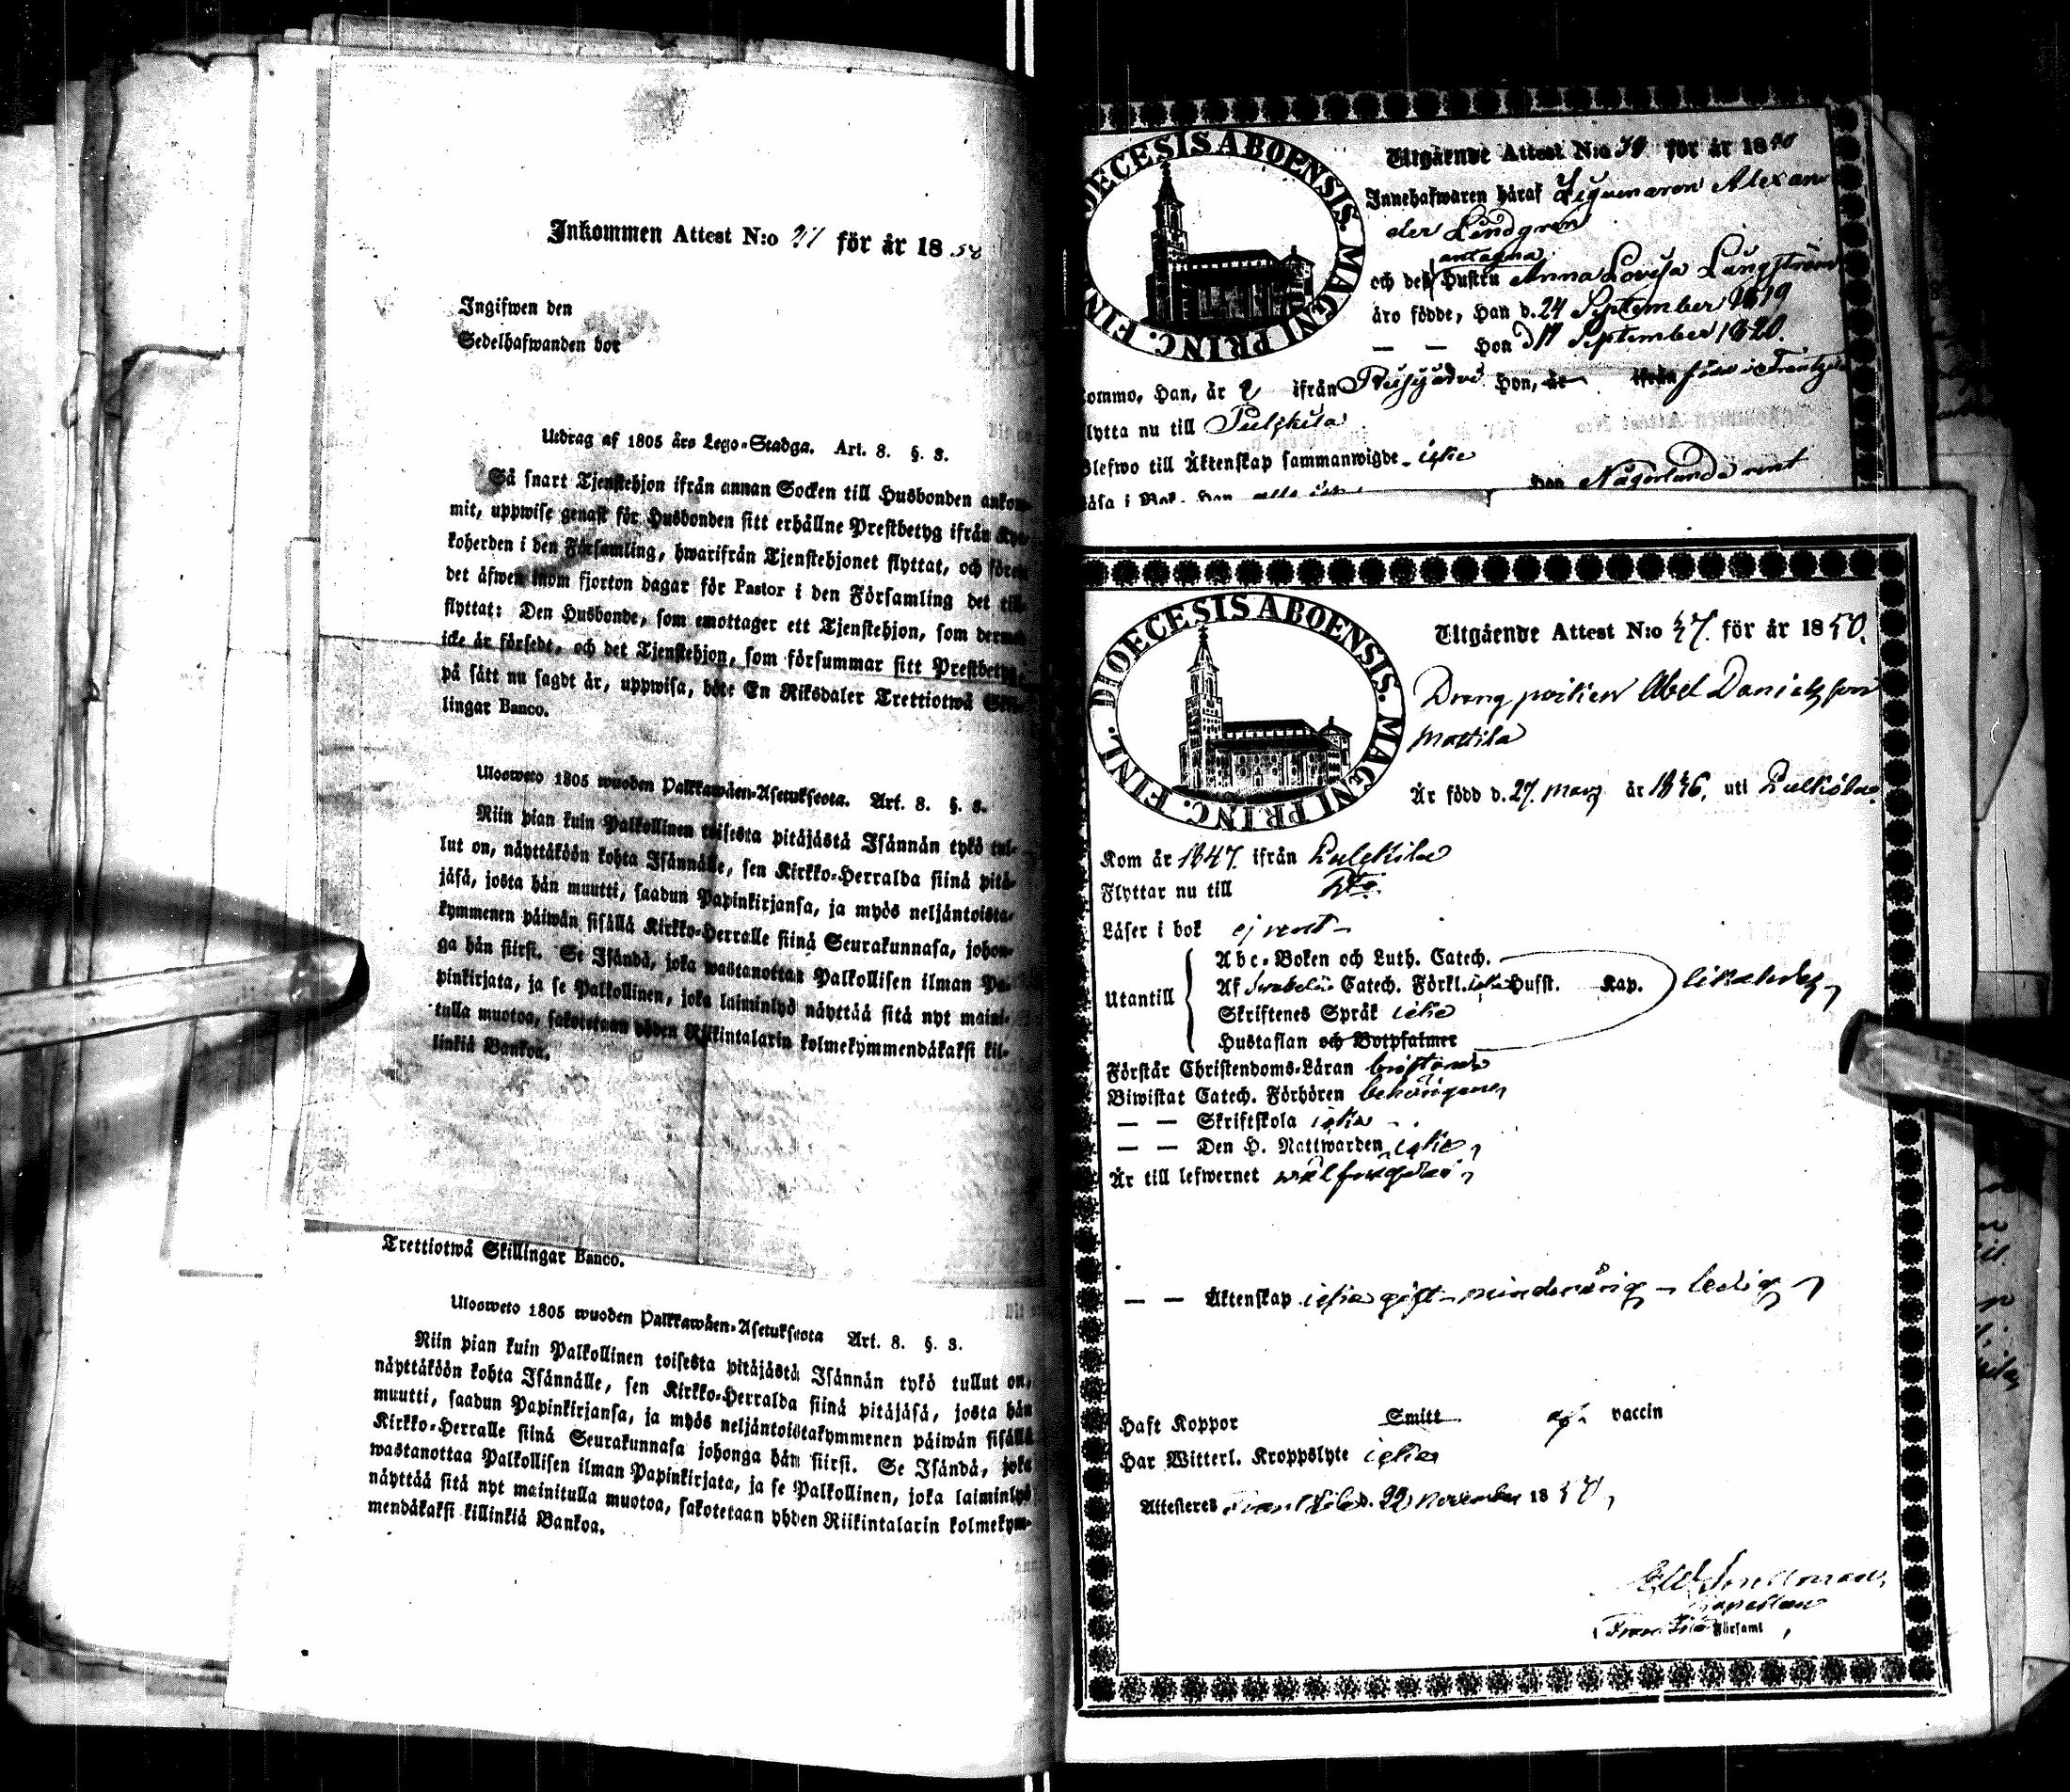 Inkommen Attest N:o 27 för år 1850
Ingifwen den
Sedelhafwanden bor
Utdrag af 1805 års Lego-Stadga. Art. 8. §. 3.
Så snart Tjenstehjon ifrån annan Socken till Husbonden ankom-
mit, uppwise genast för Husbonden sitt erhållne Prestbetyg ifrån Kyr-
koherden i den Församling, hwarifrån Tjenstehjonet flyttat, och förete
det äfwen inom fjorton dagar för Pastor i den Församling det till-
flyttat: Den Husbonde, som emottager ett Tjenstehjon, som dermed
icke är försedt, och det Tjenstehjon, som försummar sitt Prestbetyg,
på sätt nu sagdt är, uppwisa, böte En Riksdaler Trettiotwå Skil-
lingar Banco.
Ulosweto 1805 wuoden Palkkawäen-Asetuksesta. Art. 8. §. 3.
Niin pian kuin Palkollinen toisesta pitäjästä Isännän tykö tul-
lut on, näyttäköön kohta Isännälle, sen Kirkko-Herralda siinä pitä-
jäsä, josta hän muutti, saadun Papinkirjansa, ja myös neljäntoista-
kymmenen päiwän sisällä Kirkko-Herralle siinä Seurakunnasa, johon-
ga hän siirsi. Se Isändä, joka wastanottaa Palkollisen ilman Pa-
pinkirjata, ja se Palkollinen, joka laiminlyö näyttää sitä nyt maini-
tulla muotoa, sakotetaan yhden Riikintalarin kolmekymmendäkaksi kil-
linkiä Bankoa.
Trettiotwå Skillingar Banco.
Ulosweto 1805 wuoden Palkkawäen-Asetuksesta Art. 8. §. 3.
Niin pian kuin Palkollinen toisesta pitäjästä Isännän tykö tullut on,
näyttäköön kohta Isännälle, sen Kirkko-Herralda siinä pitäjäsä, josta hän
muutti, saadun Papinkirjansa, ja myös neljäntoistakymmenen päiwän sisällä
Kirkko-Herralle siinä Seurakunnasa johonga hän siirsi. Se Isändä, joka
wastanottaa Palkollisen ilman Papinkirjata, ja se Palkollinen, joka laiminlyö
näyttää sitä nyt mainitulla muotoa, sakotetaan yhden Riikintalarin kolmekym-
mendäkaksi killinkiä Bankoa.
DIOECESIS ABOENSIS. MAGNI PRINC. FINL.
Utgående Attest N:o för år 1850
Innehafwaren häraf Alexan
der Lindgren
och des Hustru Anna Lovisa
äro födde, Han d. 24 September 1819
— — Hon d September 1820.
ommo, Han, år ifrån Hon, år ifrån
lytta nu till Pulkkila
Blefwo till Äktenskap sammanwigde icke
läsa i Bok. Han Hon Någorlunda rent
DIOECESIS ABOENSIS. MAGNI PRINC. FINL.
Utgående Attest N:o 47. för år 1850.
Dreng poiken Abel Danielsson
Mattila
Är född d. 27. Mars år 1836, uti Pulkkila.
Kom år 1847. ifrån Pulkkila
Flyttar nu till Dto.
Läser i bok ej rent
Utantill
Abc-Boken och Luth. Catech.
Af Catech. Förkl. icke Husst. Kap.
Skriftenes Språk icke
Hustaflan och Botpsalmer
Förstår Christendoms-Läran
Biwistat Catech. Förhören behörigen,
— — Skriftskola icke
— — Den H. Nattwarden icke,
Är till lefwernet wälfregdad,
— — Äktenskap icke gift – minderårig – ledig
Haft Koppor Smitt af vaccin
Har Witterl. Kroppslyte icke
Attesteras Frantsila d. 22 November 1850,
Snellman
Kapellan
Frantsila Församl